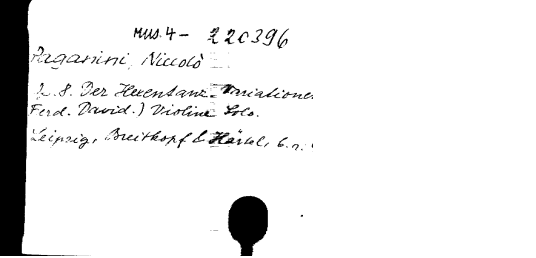 Mus. 4 - 220396
Paganini, Niccolò
Der Hexentanz Variationen
Ferd. David.) Violine Solo.
Leipzig, Breitkopf & Härtel,